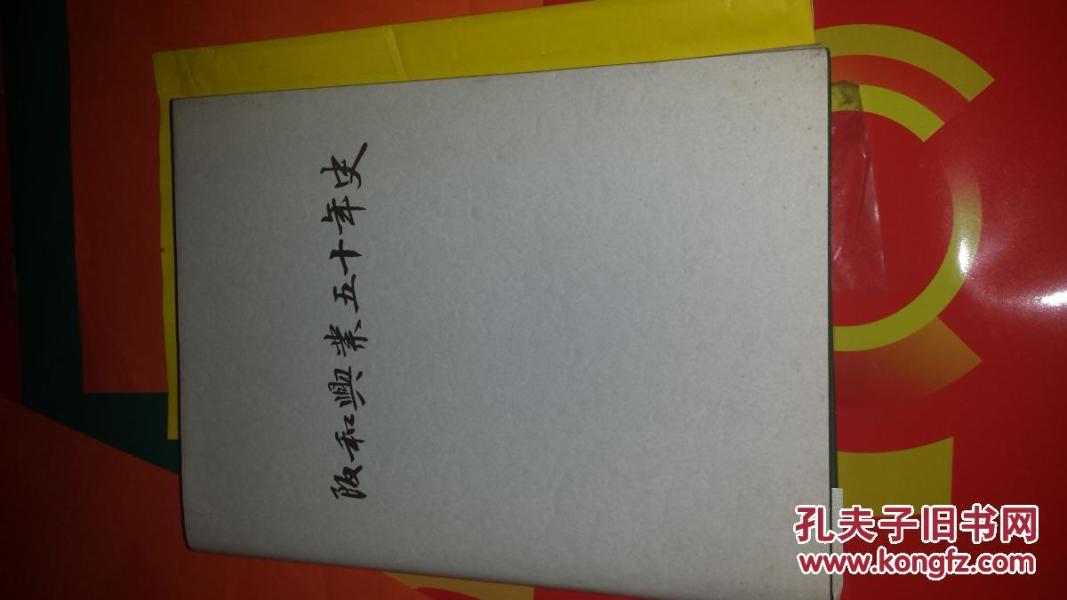 阪和興業五十年史
孔夫子旧书网
www.kongfz.com